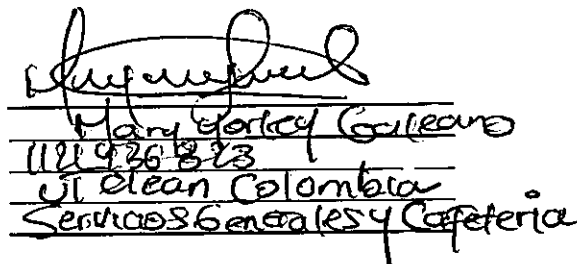 Mary Yorley Galeano
1121936823
UT Clean Colombia
Servicios Generales y Cafeteria